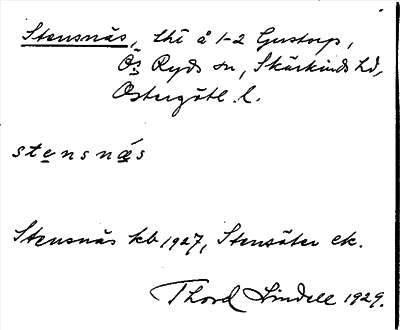 Stensnäs, lht å 1-2 Gustorp,
Ö. Ryds sn, Skärkinds hd,
Östergötl. l.
stensnä̀s
Stensnäs kb 1927, Stensäter ek.
Thord Lindell 1929.